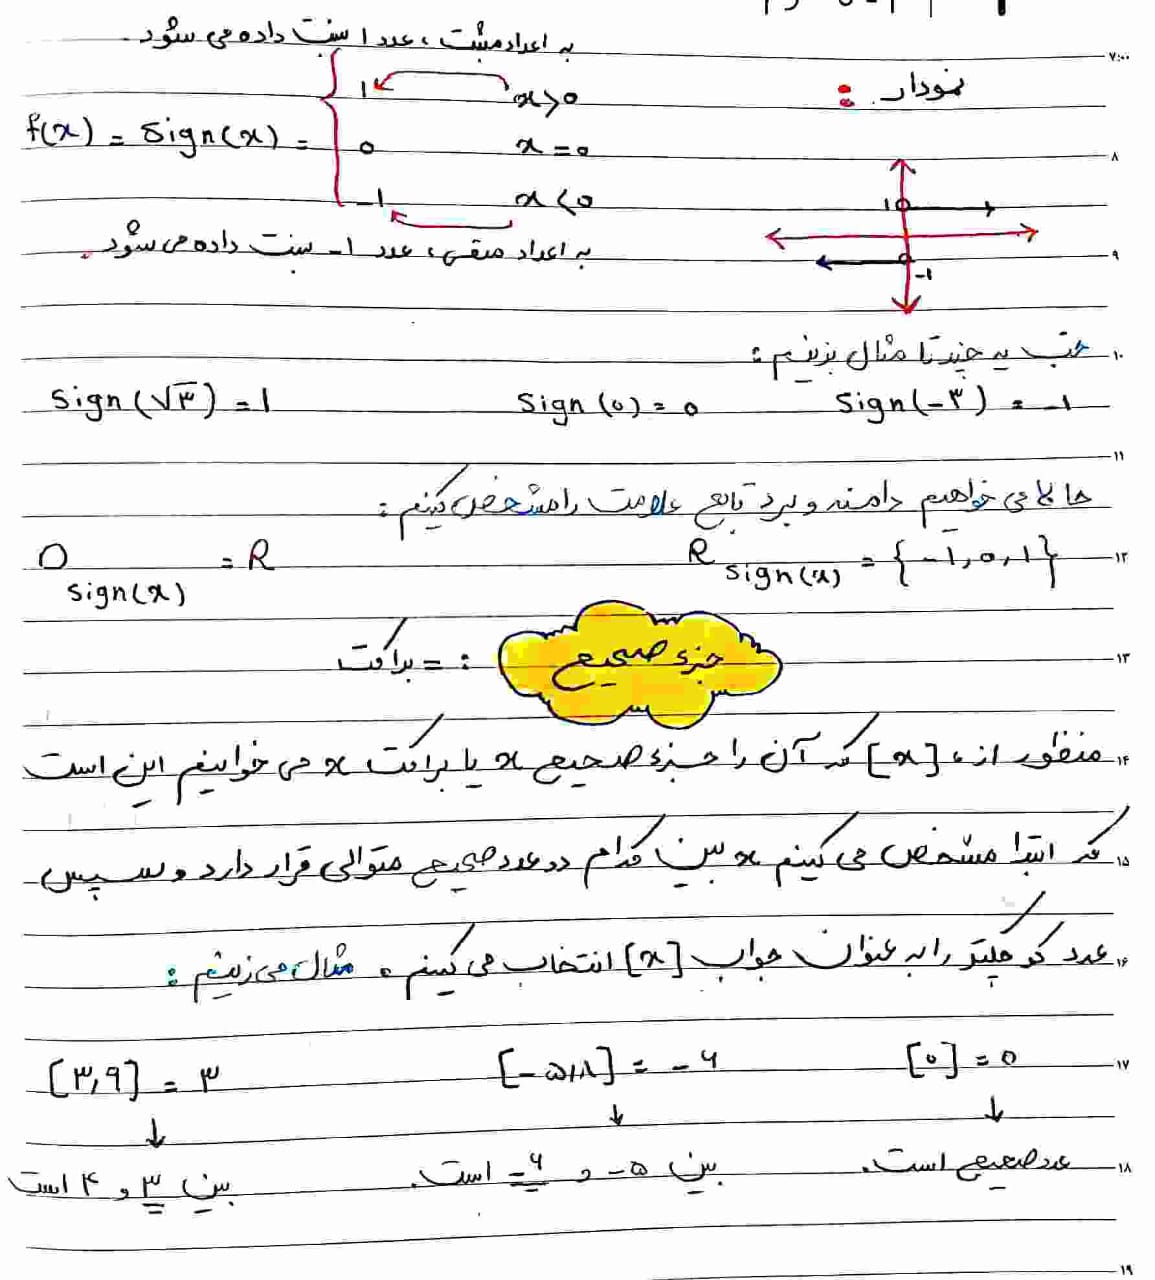 به اعداد مثبت، عدد ۱ نسبت داده می شود.
۷:۰۰
نمودار:
f(x) = Sign(x) = { ۱ x>۰
۰ x=۰
-۱ x<۰
۸
۱
-۱
به اعداد منفی، عدد ۱- نسبت داده می شود.
۹
۱۰
خب یه چندتا مثال بزنیم:
Sign(√۳) = ۱ Sign(۰) = ۰ Sign(-۳) = -۱
۱۱
حالا می خواهیم دامنه و برد تابع علامت را مشخص کنیم:
D sign(x) = R R sign(x) = {-۱,۰,۱}
۱۲
جزء صحیح : = براکت
۱۳
منظور از، [x] که آن را جزء صحیح x یا براکت x می خوانیم این است
۱۴
که ابتدا مشخص می کینم x بین کدام دو عدد صحیح متوالی قرار دارد و سپس
۱۵
عدد کوچکتر را به عنوان جواب [x] انتخاب می کینم. مثال می زنیم:
۱۶
[۳,۹] = ۳ [-۵,۸] = -۶ [۰] = ۰
۱۷
بین ۳ و ۴ است بین ۵- و ۶- است. عدد صحیح است.
۱۸
۱۹